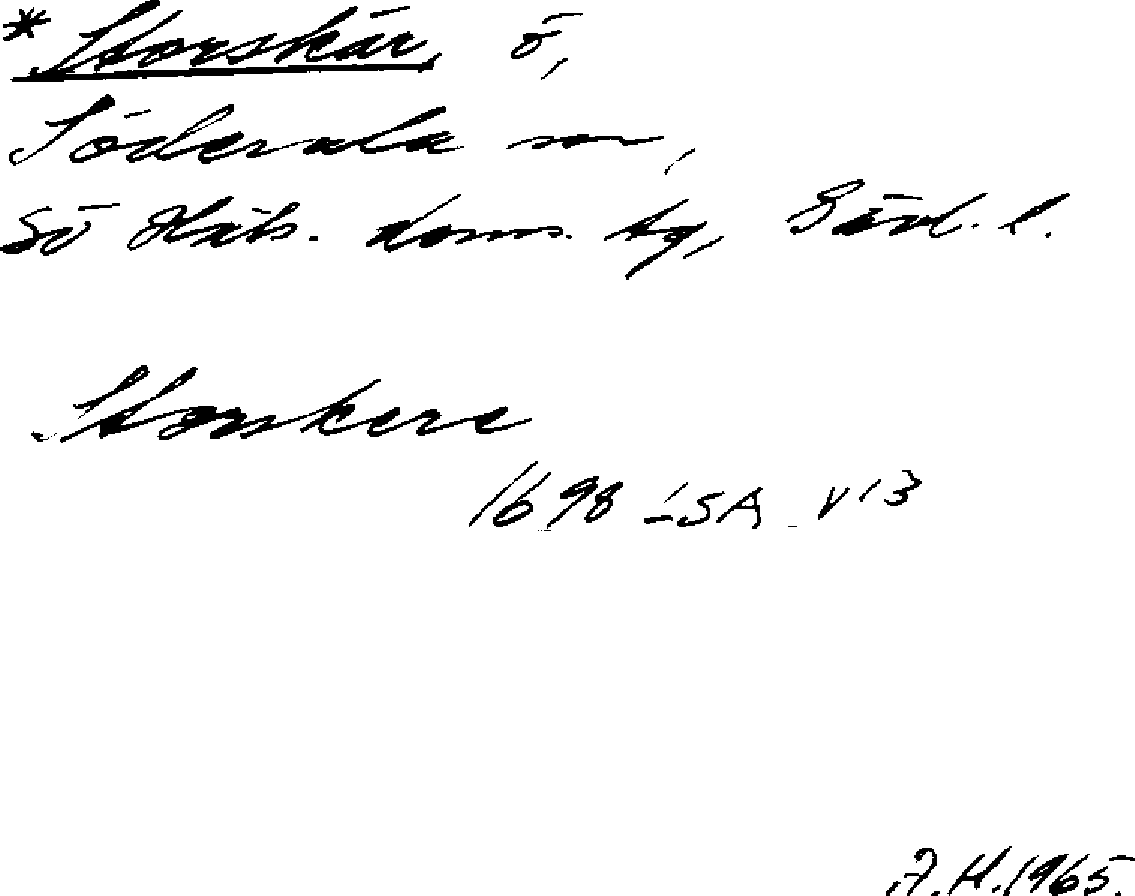 * Storskär, ö,
Söderala sn,
Sö Häls. doms. tg, Gävl. l.
Storskere
1698 LSA V13
A.H. 1965.